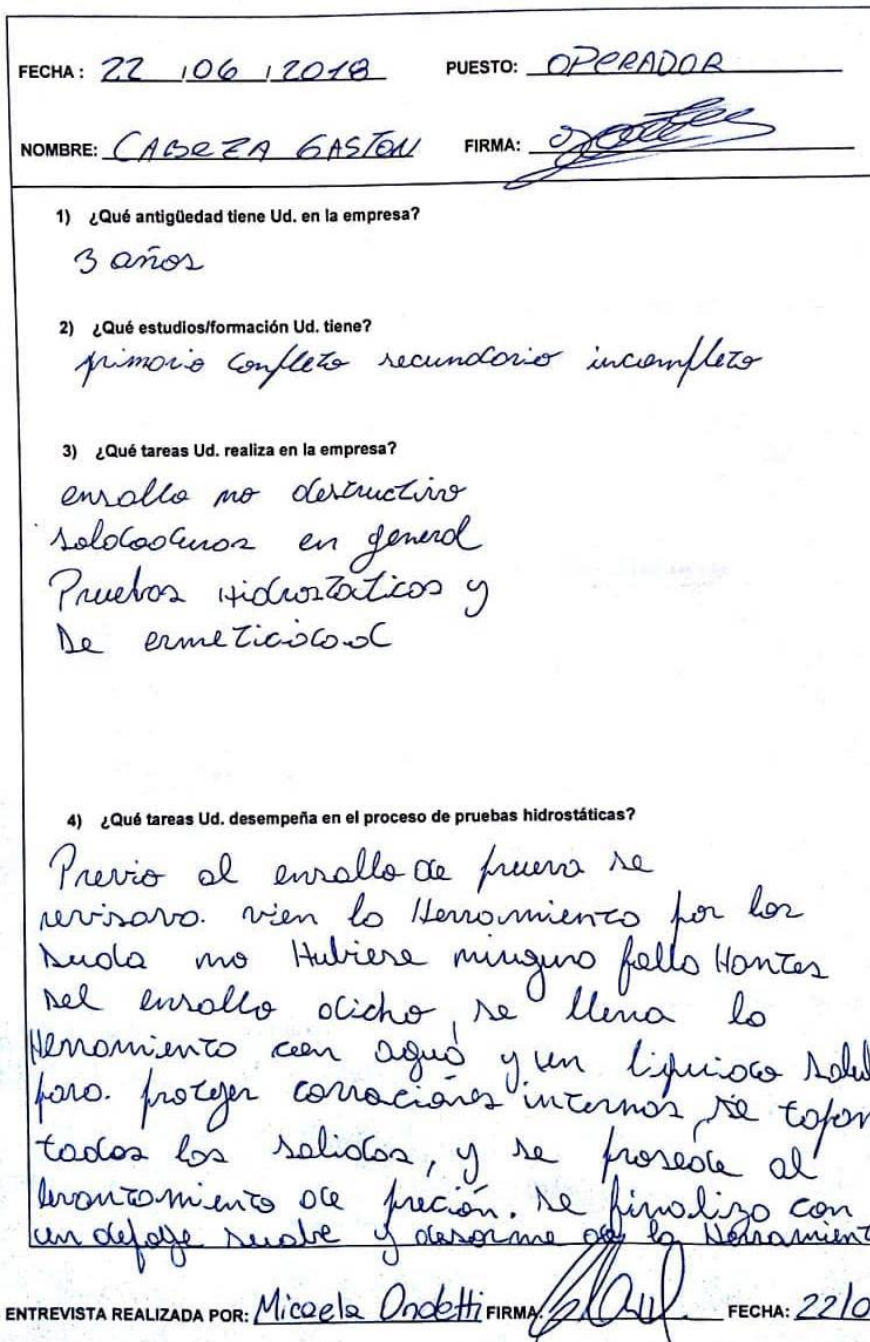 FECHA: 22 / 06 / 2018 PUESTO: OPERADOR
NOMBRE: CABEZA GASTON FIRMA:
1) ¿Qué antigüedad tiene Ud. en la empresa?
3 años
2) ¿Qué estudios/formación Ud. tiene?
primario completo secundario incompleto
3) ¿Qué tareas Ud. realiza en la empresa?
ensallo no destructivo
soldaduras en general
Pruebas Hidrostaticas y
De ermeticidad
4) ¿Qué tareas Ud. desempeña en el proceso de pruebas hidrostáticas?
Previo al ensallo de prueva se
revisara. vien la Herramienta por las
duda no Hubiere ninguna falla Hantes
del ensallo dicho, se llena la
Herramienta con agua y un liquido
para. proteger corrociones internas, se
todas las salidas, y se prosede al
levantamiento de preción. se finaliza con
un suabe y desarme de la Herramient
ENTREVISTA REALIZADA POR: Micaela Ondetti FIRMA: FECHA: 22/0